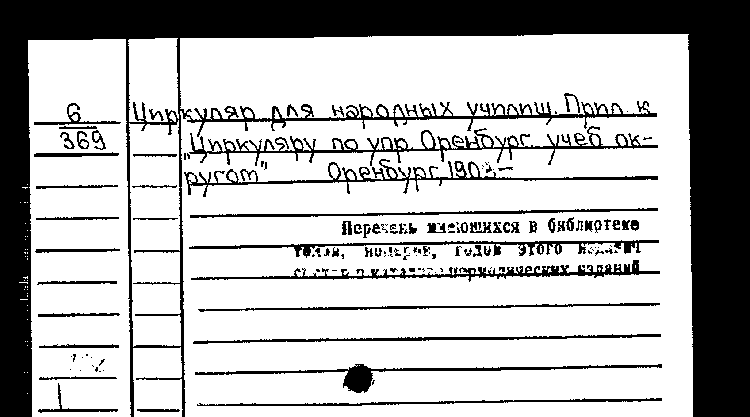 6
369
Циркуляр для народных училищ. Прил. к
"Циркуляру по упр. Оренбург. учеб. ок-
ругом" Оренбург, 1903-
Перечень имеющихся в библиотеке
томов, номеров, годов этого издания
смотри в каталоге периодических изданий